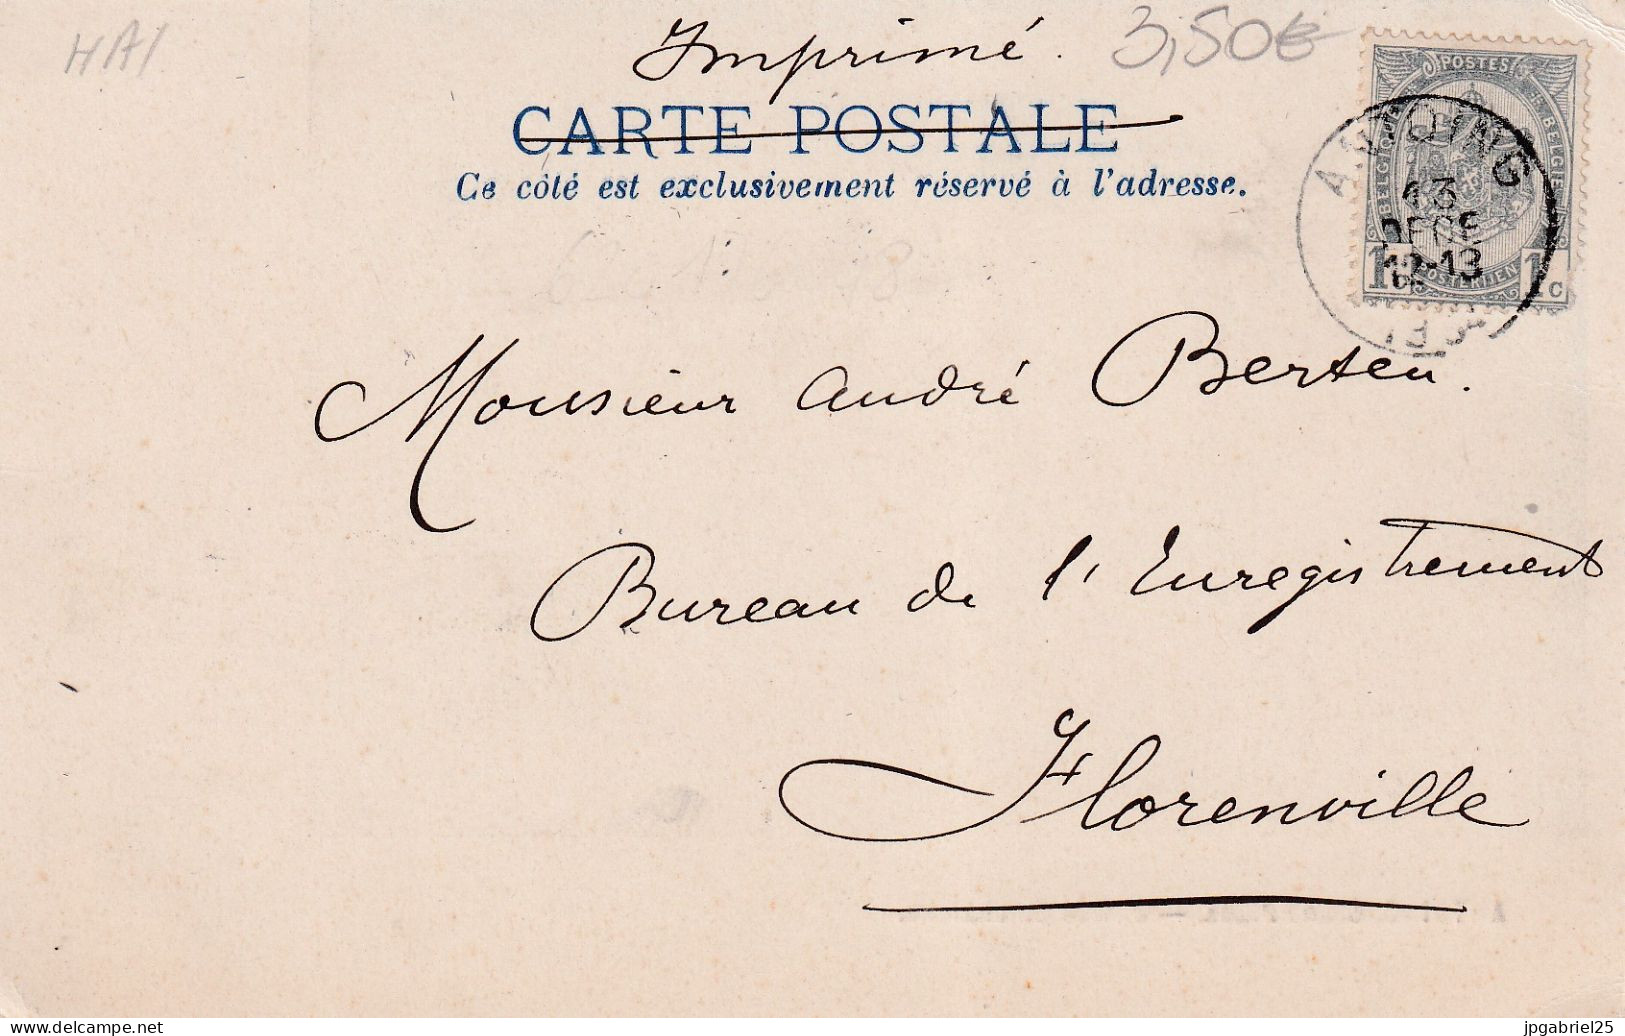 HAI
Imprimé. 3,50€
CARTE POSTALE
Ce côté est exclusivement réservé à l'adresse.
POSTES
BELGIQUE BELGIE
13
DECE
12-13
1c POSTERIJEN 1c
Monsieur André Berten.
Bureau de l'Enregistrement
Florenville
www.delcampe.net
jpgabriel25